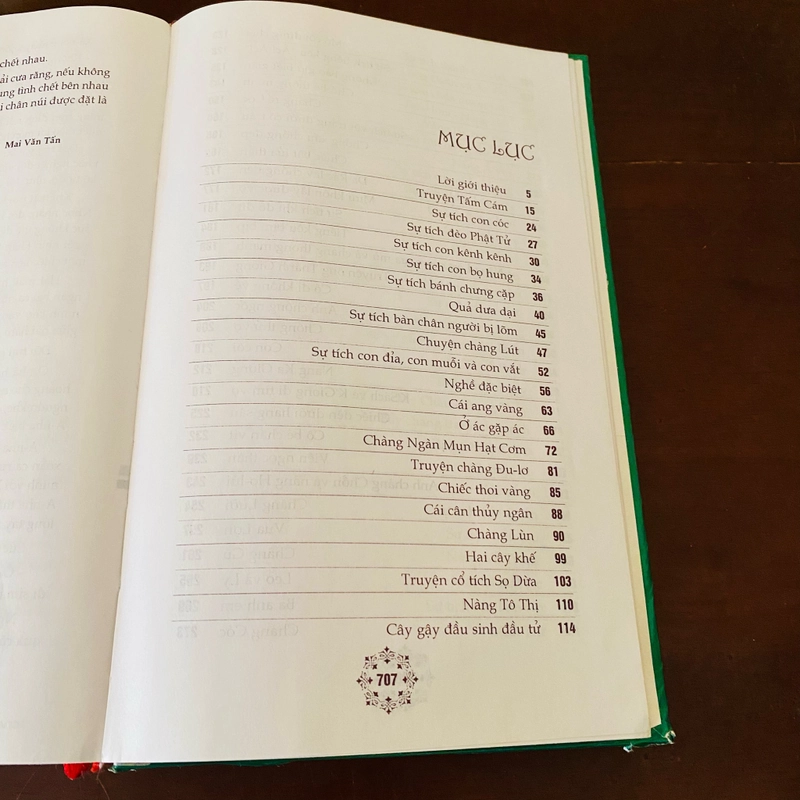 chết nhau.
ải cưa răng, nếu không
ung tình chết bên nhau
i chân núi được đặt là
Mai Văn Tấn
MỤC LỤC
Lời giới thiệu 5
Truyện Tấm Cám 15
Sự tích con cóc 24
Sự tích đèo Phật Tử 27
Sự tích con kênh kênh 30
Sự tích con bọ hung 34
Sự tích bánh chưng cặp 36
Quả dưa dại 40
Sự tích bàn chân người bị lõm 45
Chuyện chàng Lút 47
Sự tích con đỉa, con muỗi và con vắt 52
Nghề đặc biệt 56
Cái ang vàng 63
Ở ác gặp ác 66
Chàng Ngàn Mụn Hạt Cơm 72
Truyện chàng Đu-lơ 81
Chiếc thoi vàng 85
Cái cân thủy ngân 88
Chàng Lùn 90
Hai cây khế 99
Truyện cổ tích Sọ Dừa 103
Nàng Tô Thị 110
Cây gậy đầu sinh đầu tử 114
707